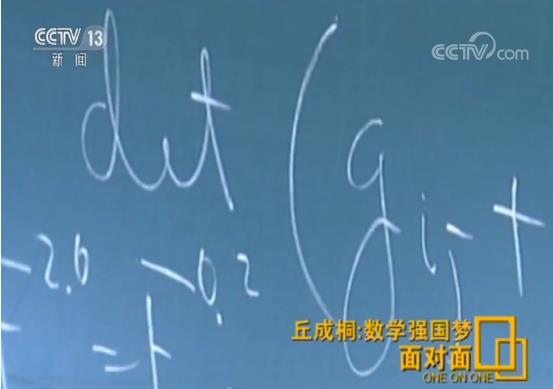 CCTV 13
新闻
CCTV com
det (g i j +
-2.0 -0.2
= +
丘成桐:数学强国梦
面对面
ONE ON ONE